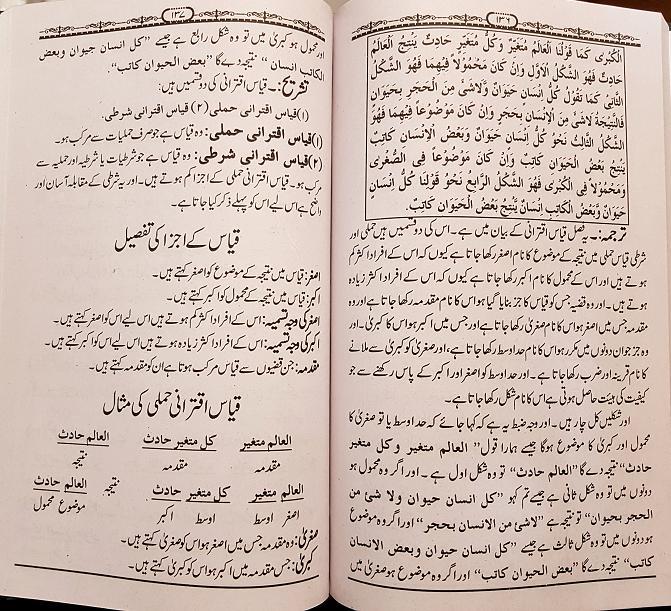 ۱۳۶
الْكُبْرٰى كَمَا قَوْلُنَا الْعَالَمُ مُتَغَيِّرٌ وَكُلُّ مُتَغَيِّرٍ حَادِثٌ يَنْتِجُ الْعَالَمُ
حَادِثٌ فَهُوَ الشَّكْلُ الْاَوَّلُ وَاِنْ كَانَ مَحْمُوْلًا فِيْهِمَا فَهُوَ الشَّكْلُ
الثَّانِىْ كَمَا تَقُوْلُ كُلُّ اِنْسَانٍ حَيَوَانٌ وَلَاشَىْءَ مِنَ الْحَجَرِ بِحَيَوَانٍ
فَالنَّتِيْجَةُ لَاشَىْءَ مِنَ الْاِنْسَانِ بِحَجَرٍ وَاِنْ كَانَ مَوْضُوْعًا فِيْهِمَا فَهُوَ
الشَّكْلُ الثَّالِثُ نَحْوُ كُلُّ اِنْسَانٍ حَيَوَانٌ وَبَعْضُ الْاِنْسَانِ كَاتِبٌ
يَنْتِجُ بَعْضُ الْحَيَوَانِ كَاتِبٌ وَاِنْ كَانَ مَوْضُوْعًا فِى الصُّغْرٰى
وَمَحْمُوْلًا فِى الْكُبْرٰى فَهُوَ الشَّكْلُ الرَّابِعُ نَحْوُ قَوْلِنَا كُلُّ اِنْسَانٍ
حَيَوَانٌ وَّبَعْضُ الْكَاتِبِ اِنْسَانٌ يَّنْتِجُ بَعْضُ الْحَيَوَانِ كَاتِبٌ.
ترجمہ:۔ یہ فصل قیاس اقترانی کے بیان میں ہے۔ اس کی دو قسمیں ہیں حملی اور
شرطی قیاس حملی میں نتیجہ کے موضوع کا نام اصغر رکھا جاتا ہے کیوں کہ اس کے افراد اکثر کم
ہوتے ہیں اور اس کے محمول کا نام اکبر رکھا جاتا ہے کیوں کہ اس کے افراد اکثر زیادہ
ہوتے ہیں۔ اور وہ قضیہ جس کو قیاس کا جز بنایا گیا ہو اس کا نام مقدمہ رکھا جاتا ہے اور وہ
مقدمہ جس میں اصغر ہو اس کا نام صغریٰ رکھا جاتا ہے اور جس میں اکبر ہو اس کا کبریٰ۔ اور
وہ جز جو ان دونوں میں مکرر ہو اس کا نام حد اوسط رکھا جاتا ہے، اور صغریٰ کو کبریٰ سے ملانے
کا نام قرینہ اور ضرب رکھا جاتا ہے۔ اور حد اوسط کو اصغر اور اکبر کے پاس رکھنے سے جو
کیفیت کی ہیئت حاصل ہوتی ہے اس کا نام شکل رکھا جاتا ہے۔
اور شکلیں کل چار ہیں۔ اور وجہ ضبط یہ ہے کہ کہا جائے کہ حد اوسط یا تو صغریٰ کا
محمول اور کبریٰ کا موضوع ہوگا جیسے ہمارا قول ”العالم متغیر وکل متغیر
حادث“ نتیجہ دے گا ”العالم حادث“ تو وہ شکل اول ہے۔ اور اگر وہ محمول ہو
دونوں میں تو وہ شکل ثانی ہے جیسے تم کہو ”کل انسان حیوان ولا شئ من
الحجر بحیوان“ تو نتیجہ ہے ”لاشئ من الانسان بحجر“ اور اگر وہ موضوع
ہو دونوں میں تو وہ شکل ثالث ہے جیسے ”کل انسان حیوان وبعض الانسان
کاتب“ نتیجہ دے گا ”بعض الحیوان کاتب“ اور اگر وہ موضوع ہو صغریٰ میں
۱۳۷
اور محمول ہو کبریٰ میں تو وہ شکل رابع ہے جیسے ”کل انسان حیوان وبعض
الکاتب انسان“ نتیجہ دے گا ”بعض الحیوان کاتب“۔
تشریح:۔ قیاس اقترانی کی دو قسمیں ہیں:
(۱) قیاس اقترانی حملی (۲) قیاس اقترانی شرطی۔
(۱) قیاس اقترانی حملی: وہ قیاس ہے جو صرف حملیات سے مرکب ہو۔
(۲) قیاس اقترانی شرطی: وہ قیاس ہے جو شرطیات یا شرطیہ اور حملیہ سے
مرکب ہو۔ قیاس اقترانی حملی کے اجزا کم ہوتے ہیں۔ اور یہ شرطی کے مقابلہ آسان اور
واضح ہے اس لیے اس کو پہلے ذکر کیا جاتا ہے۔
قیاس کے اجزا کی تفصیل
اصغر: قیاس میں نتیجہ کے موضوع کو اصغر کہتے ہیں۔
اکبر: قیاس میں نتیجہ کے محمول کو اکبر کہتے ہیں۔
اصغر کی وجہ تسمیہ: اس کے افراد اکثر کم ہوتے ہیں اس لیے اس کو اصغر کہتے ہیں۔
اکبر کی وجہ تسمیہ: اس کے افراد اکثر زیادہ ہوتے ہیں۔ اس لیے اس کو اکبر کہتے ہیں۔
مقدمہ: جن قضیوں سے قیاس مرکب ہوتا ہے ان کو مقدمہ کہتے ہیں۔
قیاس اقترانی حملی کی مثال
العالم متغیر کل متغیر حادث العالم حادث
مقدمہ مقدمہ نتیجہ
العالم متغیر کل متغیر حادث نتیجہ العالم حادث
اصغر اوسط اوسط اکبر موضوع محمول
صغریٰ: وہ مقدمہ جس میں اصغر ہو اس کو صغریٰ کہتے ہیں۔
کبریٰ: جس مقدمہ میں اکبر ہو اس کو کبریٰ کہتے ہیں۔